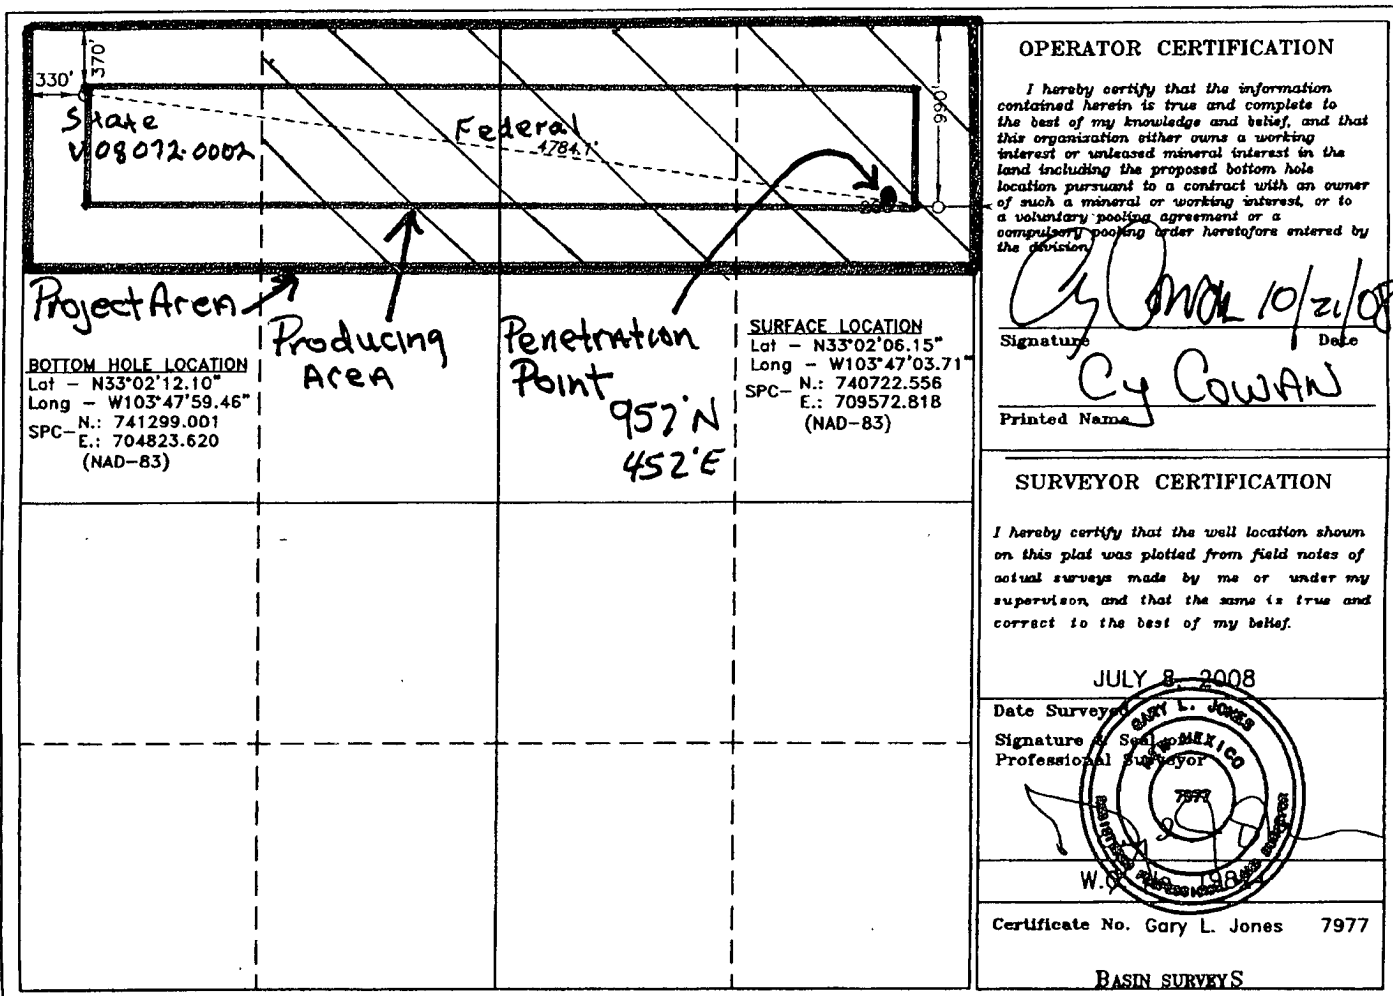 330'
370'
990'
State
V.08072.0002
Federal
4784.1'
Project Area
Producing
Area
Penetration
Point
957' N
452' E
BOTTOM HOLE LOCATION
Lat - N33°02'12.10"
Long - W103°47'59.46"
SPC- N.: 741299.001
E.: 704823.620
(NAD-83)
SURFACE LOCATION
Lat - N33°02'06.15"
Long - W103°47'03.71"
SPC- N.: 740722.556
E.: 709572.818
(NAD-83)
OPERATOR CERTIFICATION
I hereby certify that the information
contained herein is true and complete to
the best of my knowledge and belief, and that
this organization either owns a working
interest or unleased mineral interest in the
land including the proposed bottom hole
location pursuant to a contract with an owner
of such a mineral or working interest, or to
a voluntary pooling agreement or a
compulsory pooling order heretofore entered by
the division
Cy Cowan 10/21/08
Signature Date
Cy Cowan
Printed Name
SURVEYOR CERTIFICATION
I hereby certify that the well location shown
on this plat was plotted from field notes of
actual surveys made by me or under my
supervison, and that the same is true and
correct to the best of my belief.
JULY 8, 2008
Date Surveyed
Signature & Seal of
Professional Surveyor
GARY L. JONES
NEW MEXICO
7977
REGISTERED PROFESSIONAL LAND SURVEYOR
W.O.
Certificate No. Gary L. Jones 7977
BASIN SURVEYS